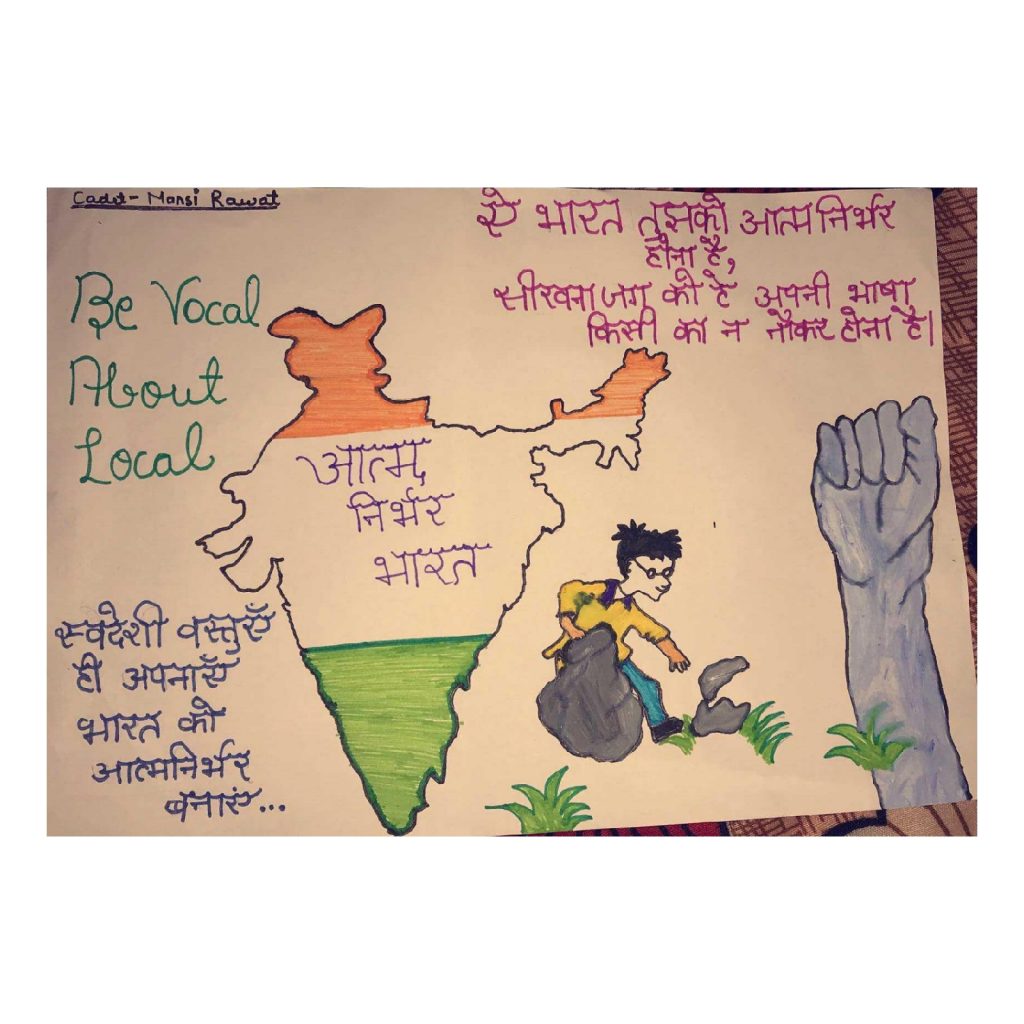 Cadet- Mansi Rawat
ऐ भारत तुझको आत्मनिर्भर
होना है,
सीखना जग को है अपनी भाषा
किसी का न नौकर होना है।
Be Vocal
About
Local
आत्म
निर्भर
भारत
स्वदेशी वस्तुएँ
ही अपनाएँ
भारत को
आत्मनिर्भर
बनाएं...